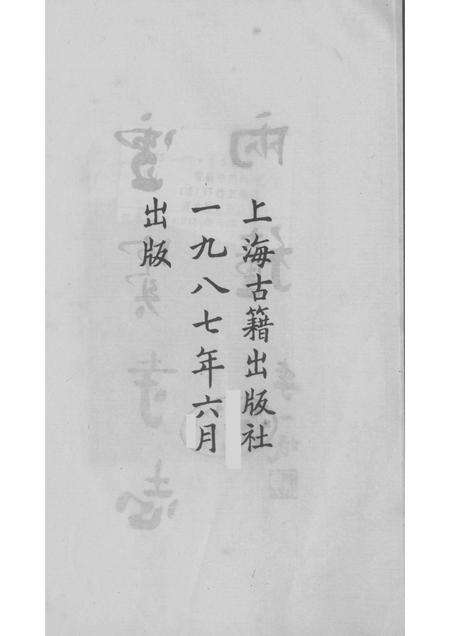 上海古籍出版社
一九八七年六月
出版